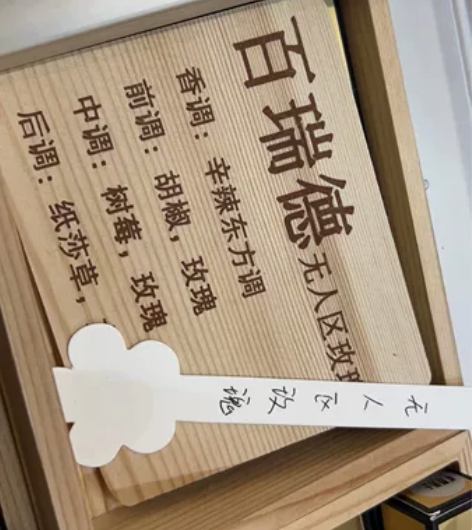 百瑞德无人区玫瑰
香调：辛辣东方调
前调：胡椒，玫瑰
中调：树莓，玫瑰
后调：纸莎草，
无人区玫瑰